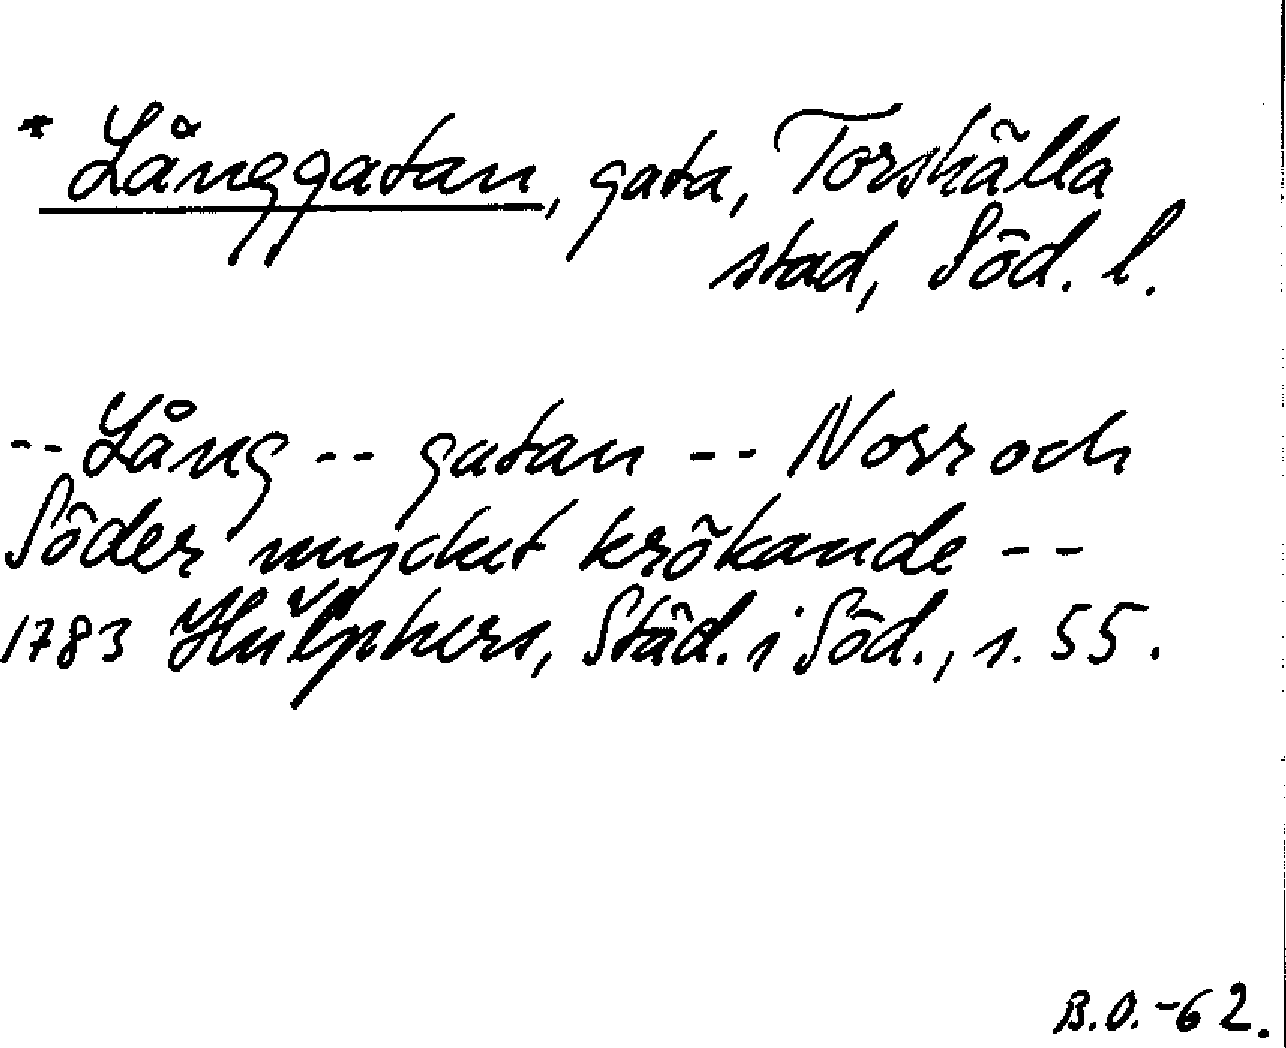 * Långgatan, gata, Torshälla
stad, Söd. l.
-- Lång -- gatan -- Norr och
Söder mycket krökande --
1783 Hülphers, Städ. i Söd., s. 55.
B.O. -62.